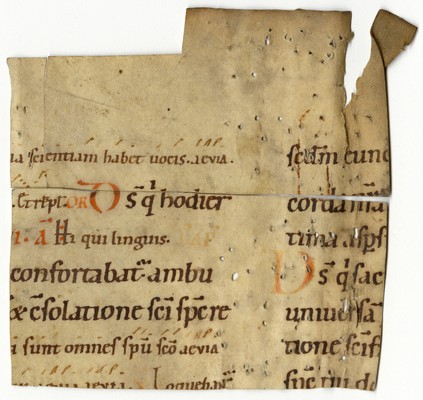 scientiam habet uocis. aeuia.
OR Ds q hodier
A Hi qui linguis.
confortabat ambu
&c̄solatione sc̄i sp̄c re
i sunt omnes sp̄u sc̄o aeuia
loqueban
sc̄dm eunc
corda n̄ra
tima asps
Ds q sac
uniuersā
tione sc̄i s